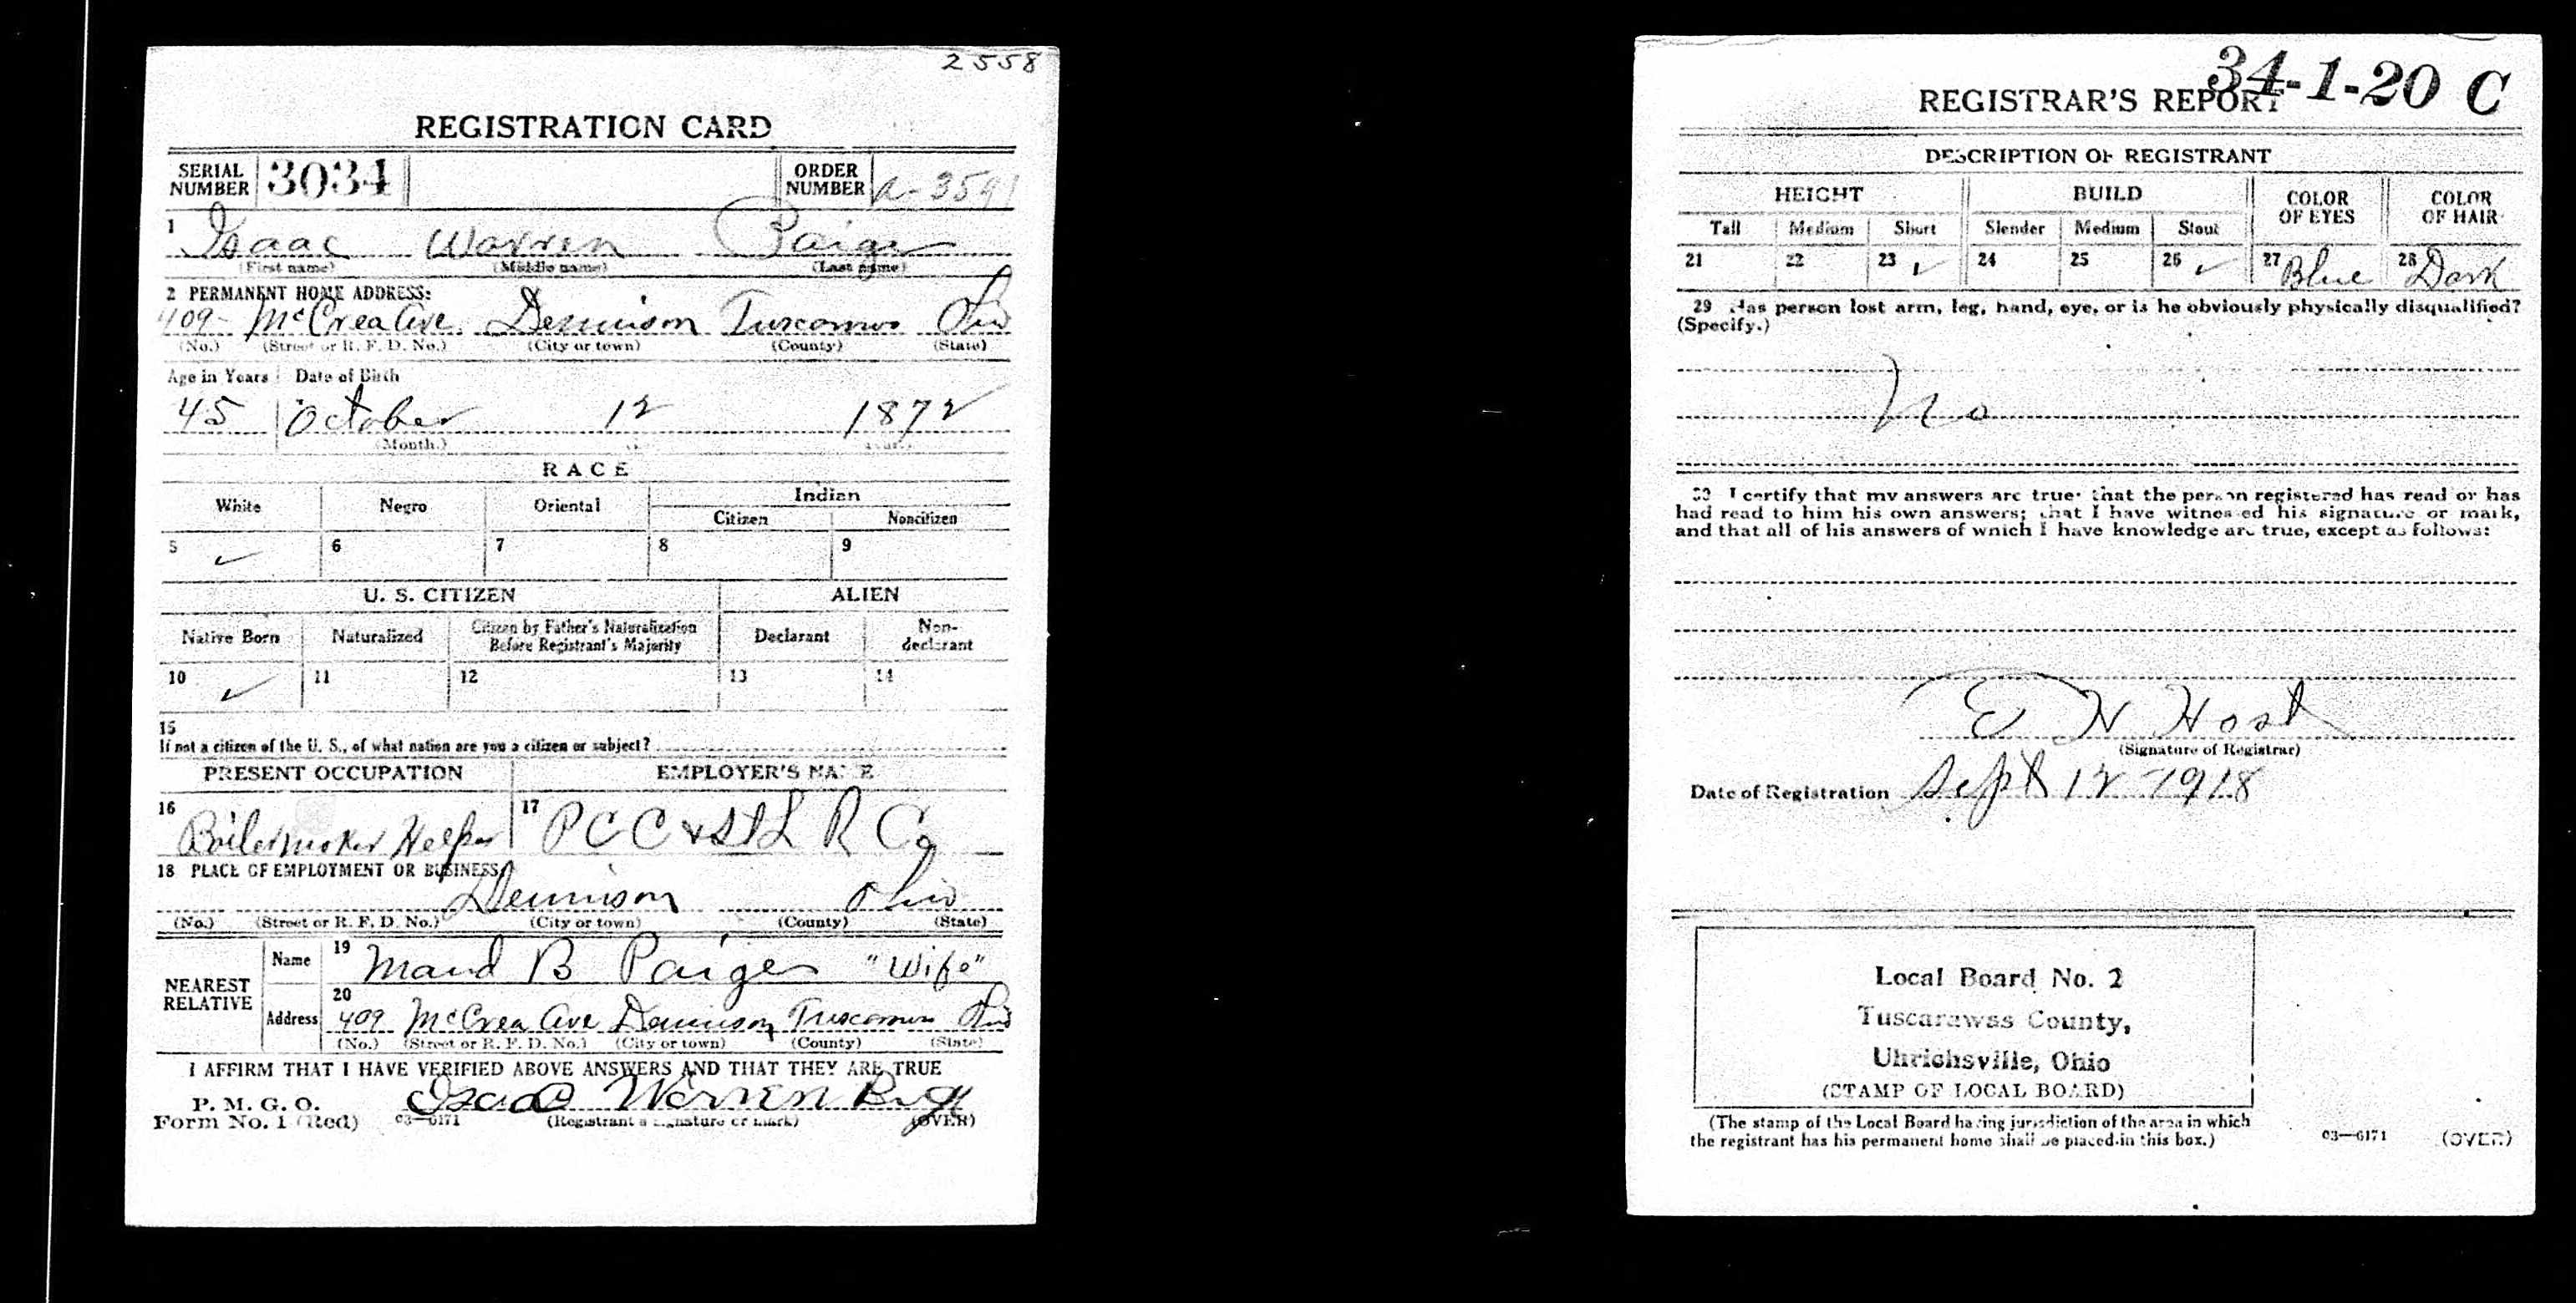 2558
REGISTRATION CARD
SERIAL NUMBER 3034 ORDER NUMBER A-3591
1 Isaac Warren Paige
(First name) (Middle name) (Last name)
2 PERMANENT HOME ADDRESS:
409 McCrea Ave. Dennison Ohio
(No.) (Street or R. F. D. No.) (City or town) (County) (State)
Age in Years Date of Birth
45 October 12 1872
(Month.)
RACE
White Negro Oriental Indian
Citizen Noncitizen
5 ✓ 6 7 8 9
U. S. CITIZEN ALIEN
Native Born Naturalized Citizen by Father's Naturalization Before Registrant's Majority Declarant Non-declarant
10 ✓ 11 12 13 14
15
If not a citizen of the U. S., of what nation are you a citizen or subject?
PRESENT OCCUPATION EMPLOYER'S NAME
16 Boilermaker Helper 17 P C C & St L R Co
18 PLACE OF EMPLOYMENT OR BUSINESS:
Dennison Ohio
(No.) (Street or R. F. D. No.) (City or town) (County) (State)
NEAREST RELATIVE
Name 19 Maud B Paige "Wife"
20
Address 409 McCrea Ave Dennison Ohio
(No.) (Street or R. F. D. No.) (City or town) (County) (State)
I AFFIRM THAT I HAVE VERIFIED ABOVE ANSWERS AND THAT THEY ARE TRUE
P. M. G. O.
Form No. 1 (Red) 03—6171 Isaac Warren
(Registrant's signature or mark) (OVER)
34-1-20 C
REGISTRAR'S REPORT
DESCRIPTION OF REGISTRANT
HEIGHT BUILD COLOR OF EYES COLOR OF HAIR
Tall Medium Short Slender Medium Stout
21 22 23 ✓ 24 25 26 ✓ 27 Blue 28 Dark
29 Has person lost arm, leg, hand, eye, or is he obviously physically disqualified?
(Specify.)
No
30 I certify that my answers are true; that the person registered has read or has
had read to him his own answers; that I have witnessed his signature or mark,
and that all of his answers of which I have knowledge are true, except as follows:
E N Host
(Signature of Registrar)
Date of Registration Sept 12 1918
Local Board No. 2
Tuscarawas County,
Uhrichsville, Ohio
(STAMP OF LOCAL BOARD)
(The stamp of the Local Board having jurisdiction of the area in which
the registrant has his permanent home shall be placed in this box.)
03—6171 (OVER)